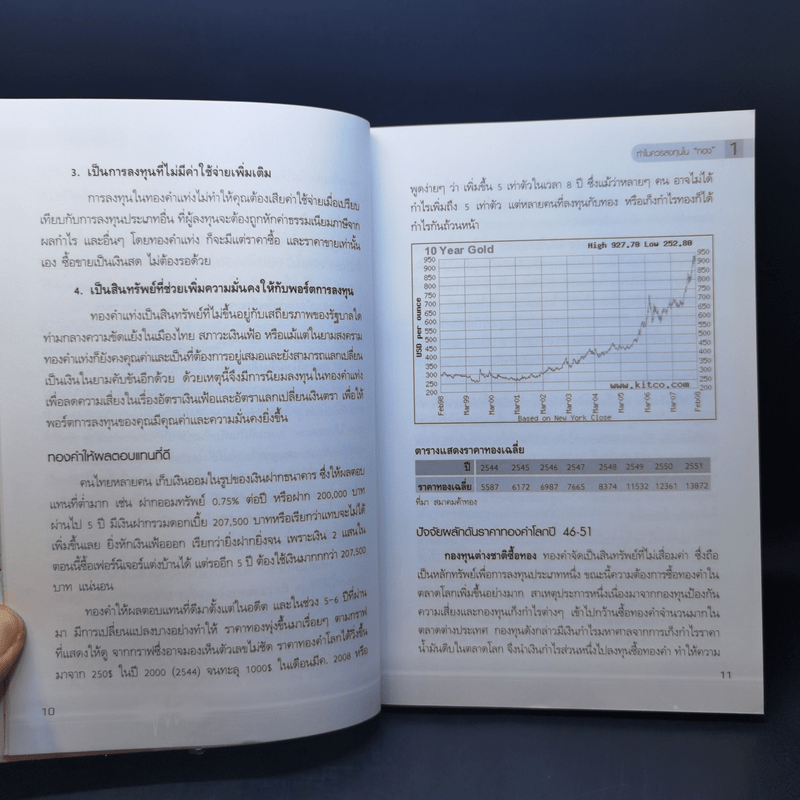 3. เป็นการลงทุนที่ไม่มีค่าใช้จ่ายเพิ่มเติม
การลงทุนในทองคำแท่งไม่ทำให้คุณต้องเสียค่าใช้จ่ายเมื่อเปรียบ
เทียบกับการลงทุนประเภทอื่น ที่ผู้ลงทุนจะต้องถูกหักค่าธรรมเนียมภาษีจาก
ผลกำไร และอื่นๆ โดยทองคำแท่ง ก็จะมีแต่ราคาซื้อ และราคาขายเท่านั้น
เอง ซื้อขายเป็นเงินสด ไม่ต้องรอด้วย
4. เป็นสินทรัพย์ที่ช่วยเพิ่มความมั่นคงให้กับพอร์ตการลงทุน
ทองคำแท่งเป็นสินทรัพย์ที่ไม่ขึ้นอยู่กับเสถียรภาพของรัฐบาลใด
ท่ามกลางความขัดแย้งในเมืองไทย สภาวะเงินเฟ้อ หรือแม้แต่ในยามสงคราม
ทองคำแท่งก็ยังคงคุณค่าและเป็นที่ต้องการอยู่เสมอและยังสามารถแลกเปลี่ยน
เป็นเงินในยามคับขันอีกด้วย ด้วยเหตุนี้จึงมีการนิยมลงทุนในทองคำแท่ง
เพื่อลดความเสี่ยงในเรื่องอัตราเงินเฟ้อและอัตราแลกเปลี่ยนเงินตรา เพื่อให้
พอร์ตการลงทุนของคุณมีคุณค่าและความมั่นคงยิ่งขึ้น
ทองคำให้ผลตอบแทนที่ดี
คนไทยหลายคน เก็บเงินออมในรูปของเงินฝากธนาคาร ซึ่งให้ผลตอบ
แทนที่ต่ำมาก เช่น ฝากออมทรัพย์ 0.75% ต่อปี หรือฝาก 200,000 บาท
ผ่านไป 5 ปี มีเงินฝากรวมดอกเบี้ย 207,500 บาทหรือเรียกว่าแทบจะไม่ได้
เพิ่มขึ้นเลย ยิ่งหักเงินเฟ้อออก เรียกว่ายิ่งฝากยิ่งจน เพราะเงิน 2 แสนใน
ตอนนี้ซื้อเฟอร์นิเจอร์แต่งบ้านได้ แต่รออีก 5 ปี ต้องใช้เงินมากกกว่า 207,500
บาท แน่นอน
ทองคำให้ผลตอบแทนที่ดีมาตั้งแต่ในอดีต และในช่วง 5-6 ปีที่ผ่าน
มา มีการเปลี่ยนแปลงบางอย่างทำให้ ราคาทองพุ่งขึ้นมาเรื่อยๆ ตามกราฟ
ที่แสดงให้ดู จากกราฟซึ่งอาจมองเห็นตัวเลขไม่ชัด ราคาทองคำโลกได้วิ่งขึ้น
มาจาก 250$ ในปี 2000 (2544) จนทะลุ 1000$ ในเดือนมีค. 2008 หรือ
10
ทำไมควรลงทุนใน "ทอง" 1
พูดง่ายๆ ว่า เพิ่มขึ้น 5 เท่าตัวในเวลา 8 ปี ซึ่งแม้ว่าหลายๆ คน อาจไม่ได้
กำไรเพิ่มถึง 5 เท่าตัว แต่หลายคนที่ลงทุนกับทอง หรือเก็งกำไรทองก็ได้
กำไรกันถ้วนหน้า
10 Year Gold High 927.70 Low 252.80
USD per ounce
950 950
900 900
850 850
800 800
750 750
700 700
650 650
600 600
550 550
500 500
450 450
400 400
350 350
300 300
250 250
200 200
www.kitco.com
Feb98 Mar99 Mar00 Mar01 Mar02 Mar03 Mar04 Mar05 Mar06 Mar07 Feb08
Based on New York Close
ตารางแสดงราคาทองเฉลี่ย
ปี 2544 2545 2546 2547 2548 2549 2550 2551
ราคาทองเฉลี่ย 5587 6172 6987 7665 8374 11532 12361 13872
ที่มา สมาคมค้าทอง
ปัจจัยผลักดันราคาทองคำโลกปี 46-51
กองทุนต่างชาติซื้อทอง ทองคำจัดเป็นสินทรัพย์ที่ไม่เสื่อมค่า ซึ่งถือ
เป็นหลักทรัพย์เพื่อการลงทุนประเภทหนึ่ง ขณะนี้ความต้องการซื้อทองคำใน
ตลาดโลกเพิ่มขึ้นอย่างมาก สาเหตุประการหนึ่งเนื่องมาจากกองทุนป้องกัน
ความเสี่ยงและกองทุนเก็งกำไรต่างๆ เข้าไปกว้านซื้อทองคำจำนวนมากใน
ตลาดต่างประเทศ กองทุนดังกล่าวมีเงินกำไรมหาศาลจากการเก็งกำไรราคา
น้ำมันดิบในตลาดโลก จึงนำเงินกำไรส่วนหนึ่งไปลงทุนซื้อทองคำ ทำให้ความ
11